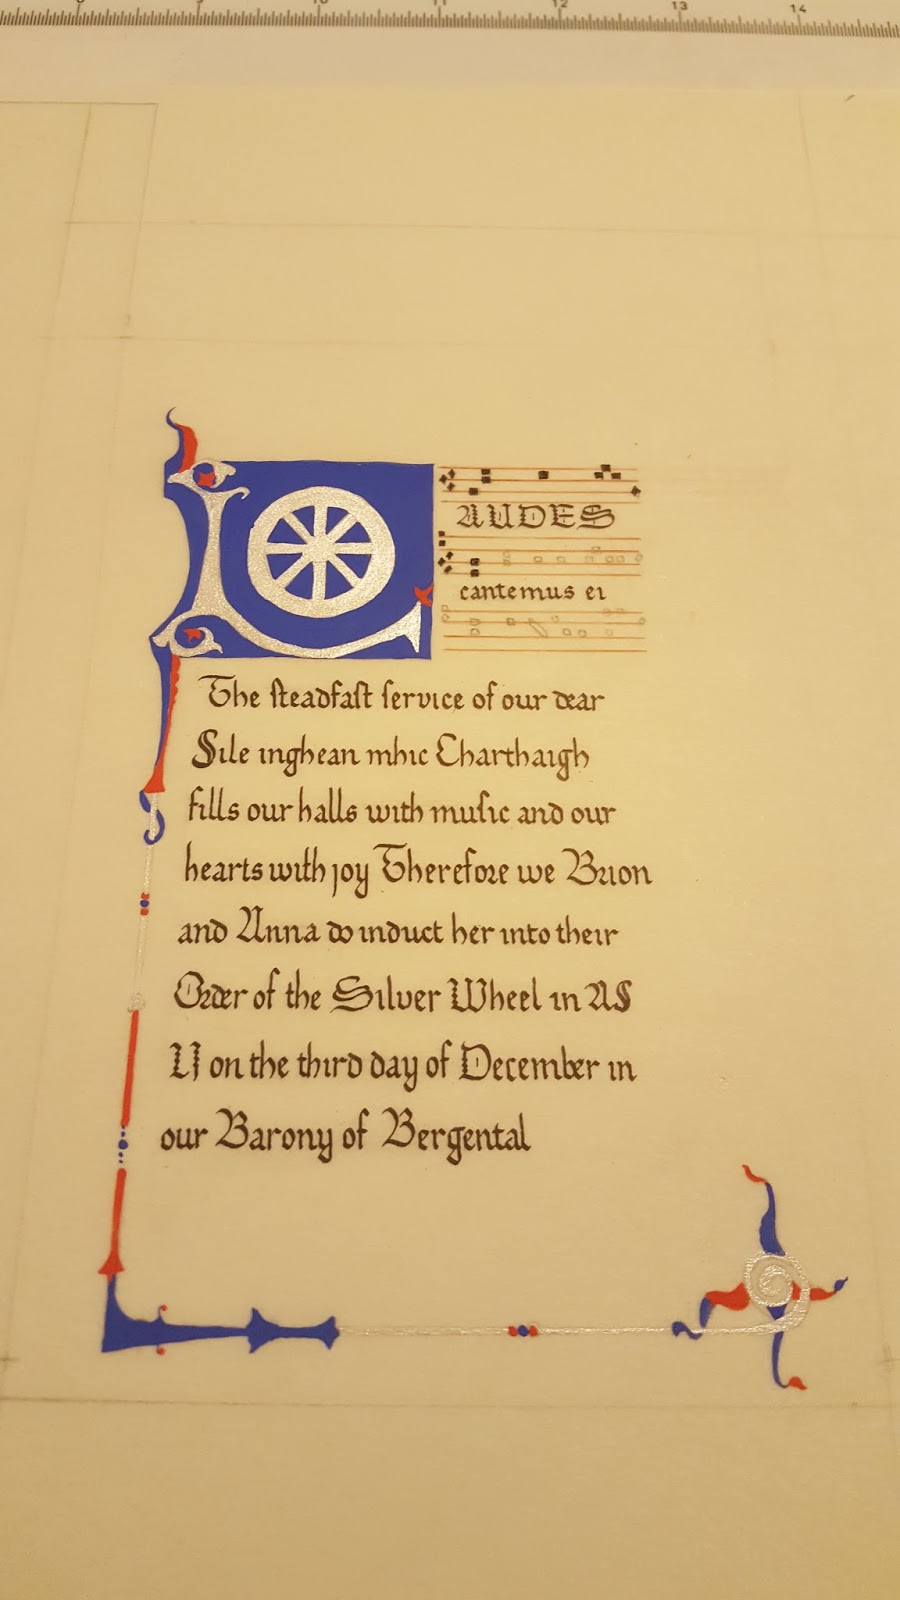 9 10 11 12 13 14
LAUDES
cantemus ei
The ſteadfaſt ſervice of our dear
Sile inghean mhic Charthaigh
fills our halls with muſic and our
hearts with joy Therefore we Brion
and Anna do induct her into their
Order of the Silver Wheel in AS
LI on the third day of December in
our Barony of Bergental